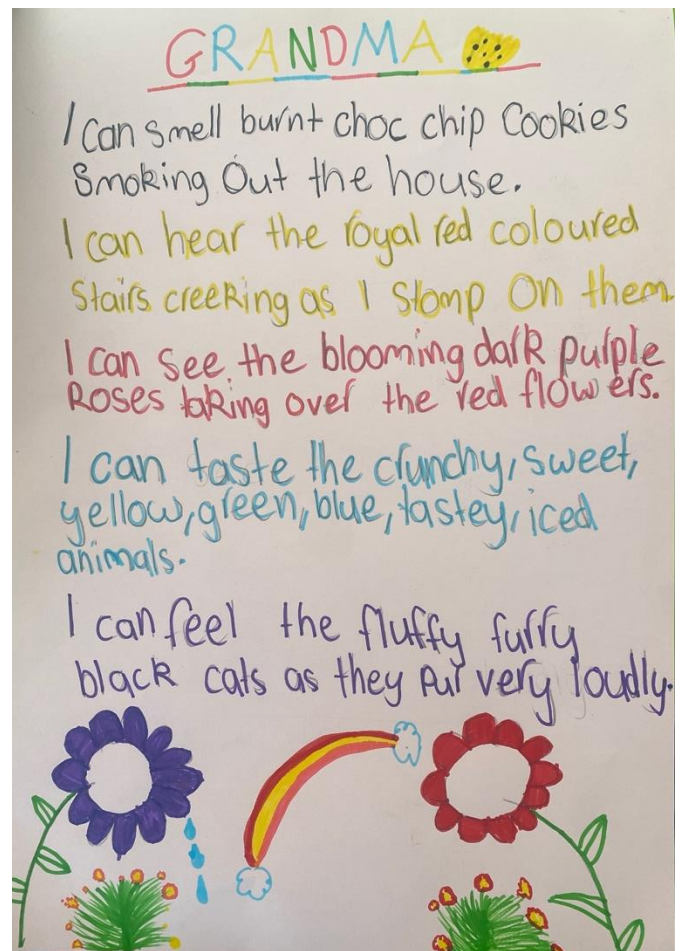 GRANDMA
I can smell burnt choc chip Cookies
Smoking Out the house.
I can hear the royal red coloured
Stairs creeking as I Stomp On them.
I can see the blooming dark purple
Roses taking over the red flowers.
I can taste the crunchy, sweet,
yellow, green, blue, tastey, iced
animals.
I can feel the fluffy furry
black cats as they pur very loudly.